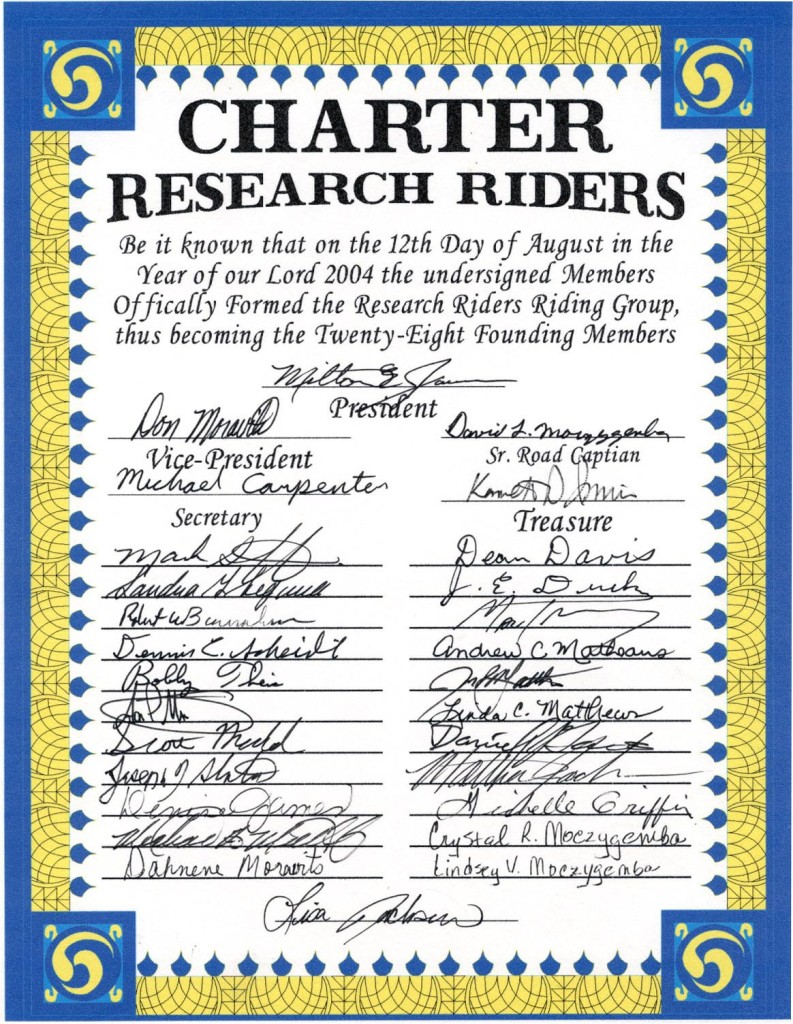 CHARTER
RESEARCH RIDERS
Be it known that on the 12th Day of August in the
Year of our Lord 2004 the undersigned Members
Offically Formed the Research Riders Riding Group,
thus becoming the Twenty-Eight Founding Members
Milton E
President
Don Moravits David L. Moczygemba
Vice-President Sr. Road Captian
Michael Carpenter Kenneth D
Secretary Treasure
Mark Dean Davis
Sandra J. E.
Robert W
Dennis C. Scheidt Andrew C. Matheaus
Bobby Theis
Linda C. Matthews
Scott Daniel
Joseph J Matthew
Denise James Michelle Griffin
Crystal R. Moczygemba
Dahnene Moravits Lindsey V. Moczygemba
Lisa Jackson